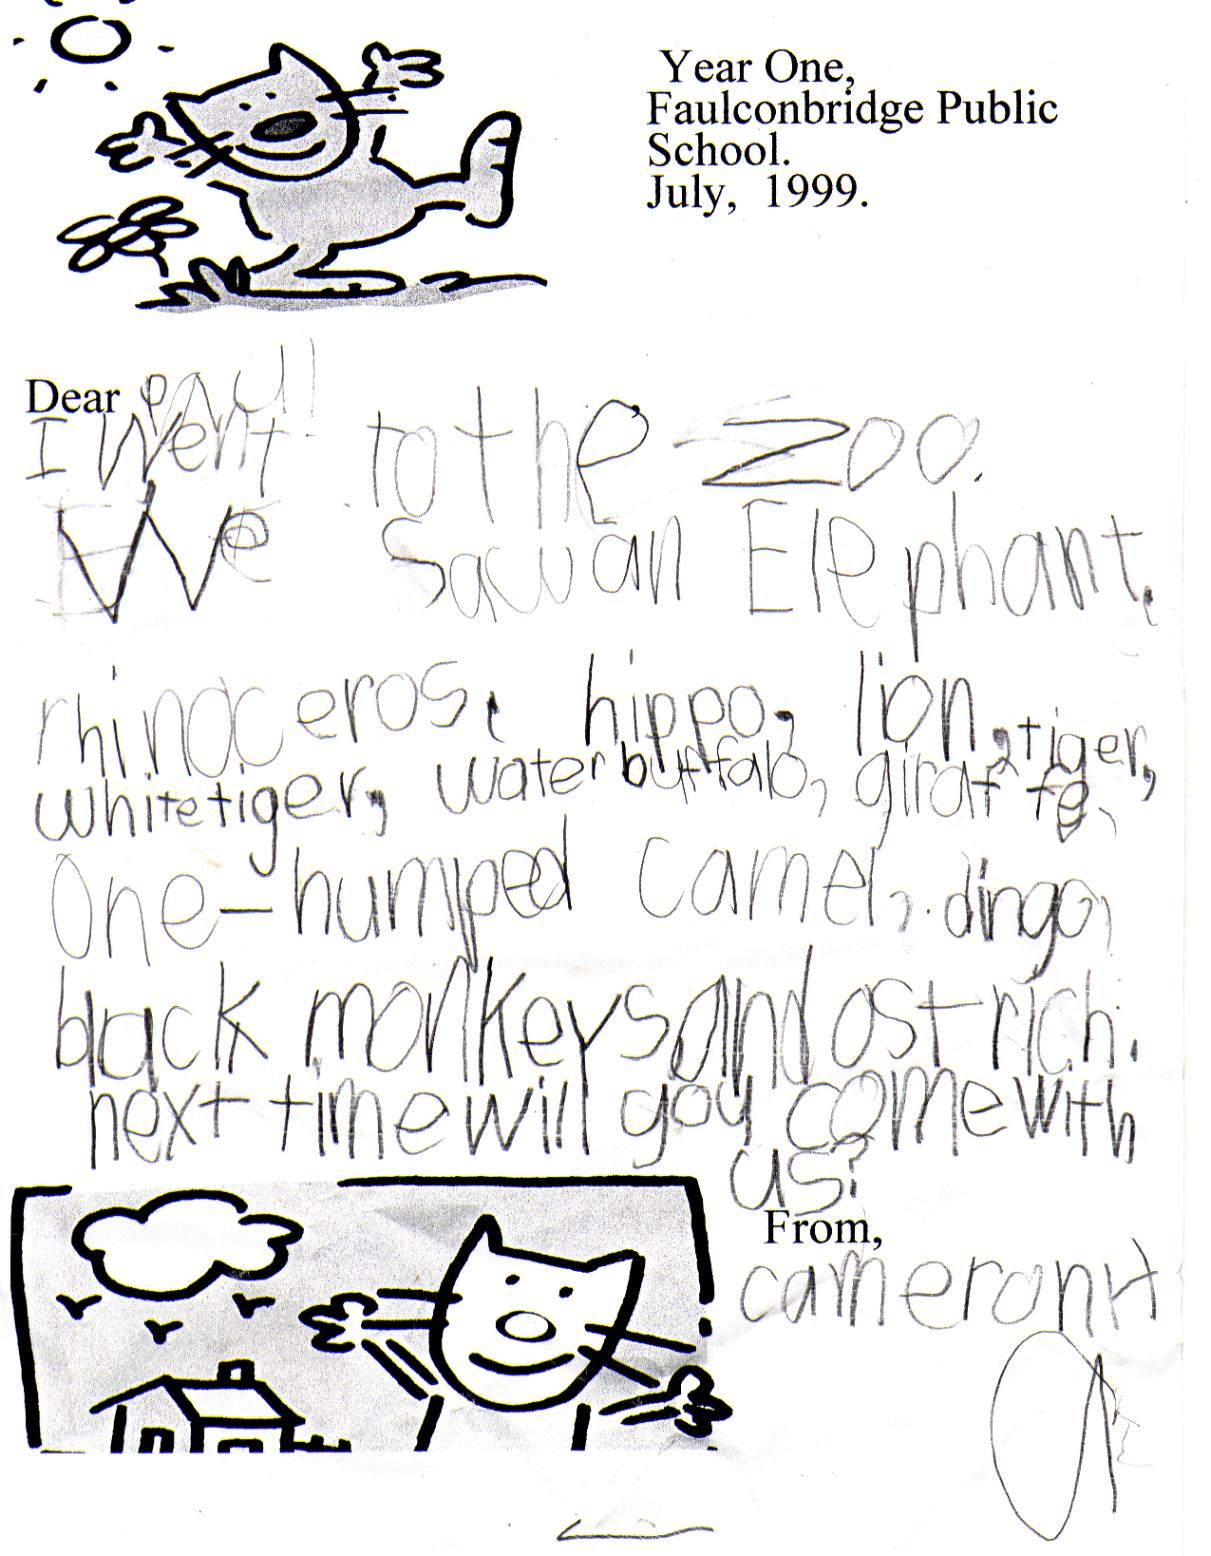 Year One,
Faulconbridge Public
School.
July, 1999.
Dear paul
I Went to the Zoo.
We Saw an Elephant,
rhinoceros, hippo, lion, tiger,
white tiger, water buffalo, giraffe,
One-humped camel, dingo,
black monkeys and ostrich.
next time will you come with
us?
From,
cameron H